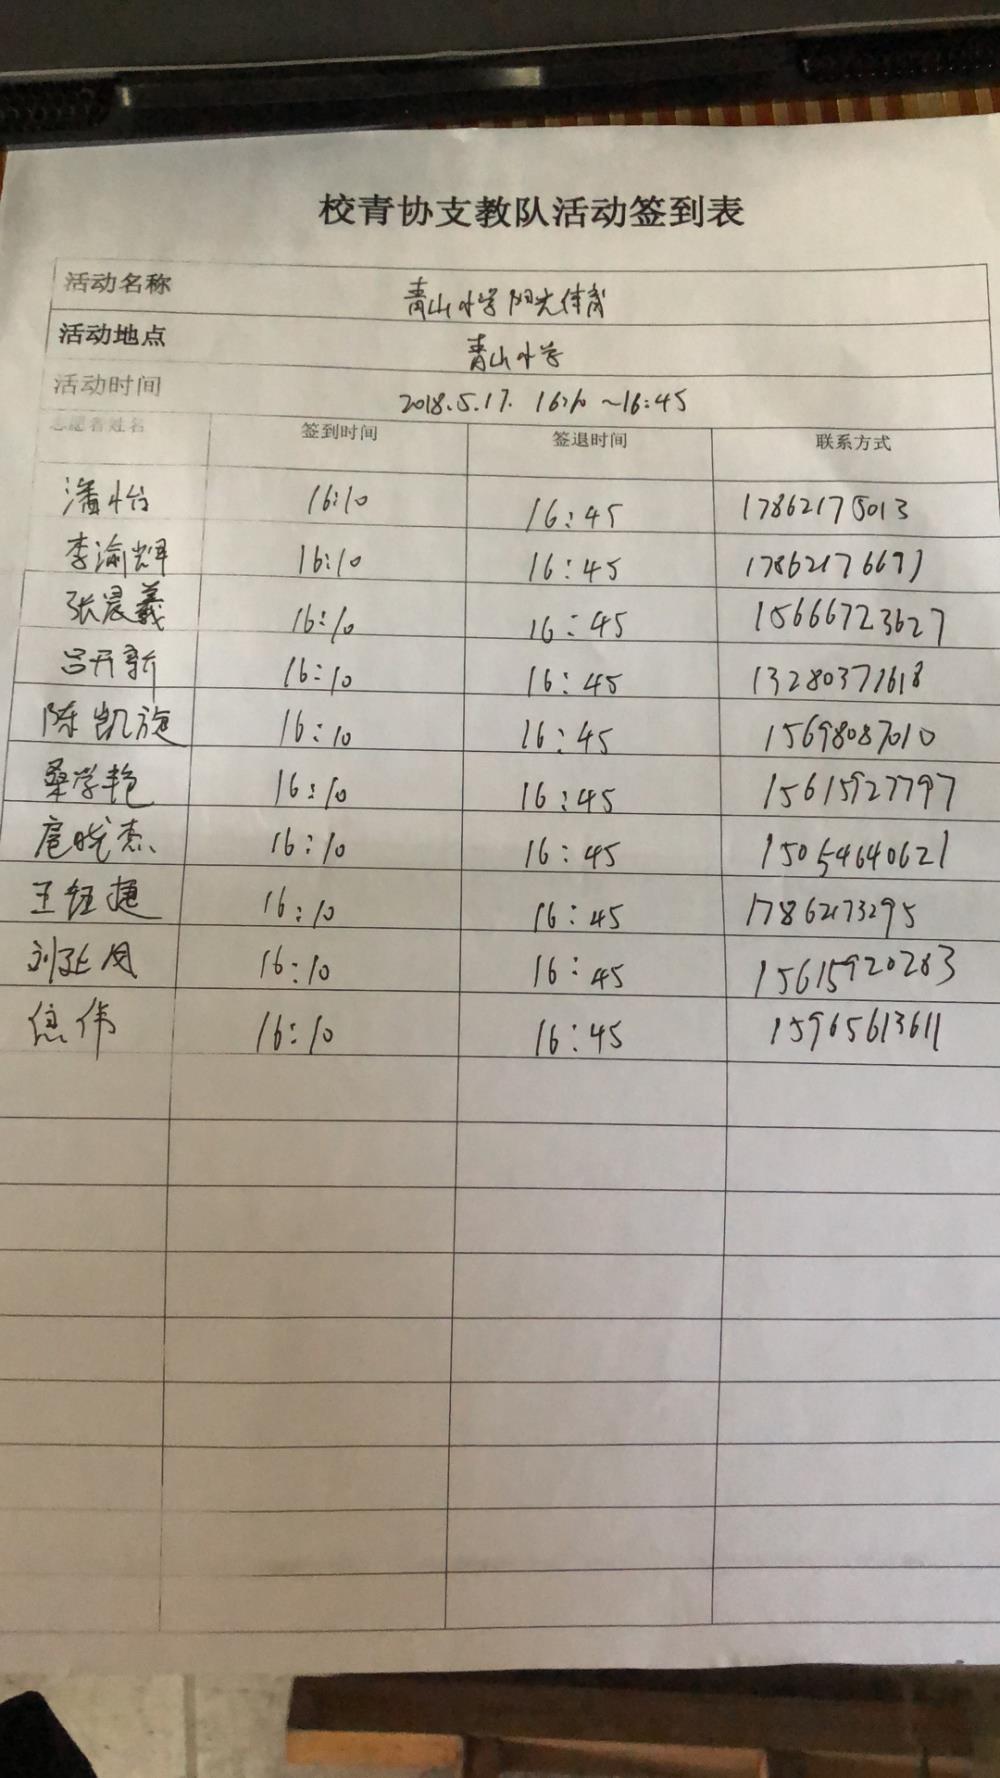 校青协支教队活动签到表
活动名称 青山小学阳光体育
活动地点 青山小学
活动时间 2018.5.17. 16:10 ~16:45
志愿者姓名 签到时间 签退时间 联系方式
潘怡 16:10 16:45 17862175013
李渝辉 16:10 16:45 17862176671
张晨羲 16:10 16:45 15666723627
吕开新 16:10 16:45 13280371618
陈凯旋 16:10 16:45 15698087010
桑学艳 16:10 16:45 15615927797
扈晓杰 16:10 16:45 15054640621
王钰捷 16:10 16:45 17862173295
刘延凤 16:10 16:45 15615920283
信伟 16:10 16:45 15965613611